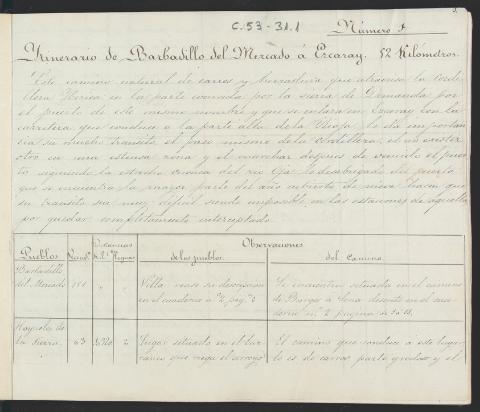 C.53-31.1
Número 4
Itinerario de Barbadillo del Mercado á Ezcaray. 52 Kilómetros.
Este camino natural de carros y herradura que atraviesa la Cordi-
llera Iberica en la parte conocida por la sierra de Demanda por
el puerto de este mismo nombre y que se enlaza en Ezcaray con la
carretera que conduce a la parte alta de la Rioja, le da importan
cia su mucho transito, el paso mismo de la Cordillera, el no existir
otro en una estensa zona y el marchar despues de vencido el puer
to siguiendo la estrecha cuenca del rio Oja: lo desabrigado del puerto
que se encuentra la mayor parte del año cubierto de nieve hacen que
su transito sea muy dificil siendo imposible en las estaciones de aquella
por quedar completamente interceptado.
Pueblos Vecin.s Distancias Observaciones
Leguas de los pueblos. del camino.
Barbadillo
del Mercado " " Villa vease su descripcion
en el cuaderno nº 2 pag.
Se encuentra situado en el camino
de Burgos á Soria descrito en el cua
derno nº 2 pagina
Hoyuelos de
la Sierra. 63 2 Lugar situado en el bar
ranco que riega el arroyo
El camino que conduce a este lugar
lo es de carros parte y el